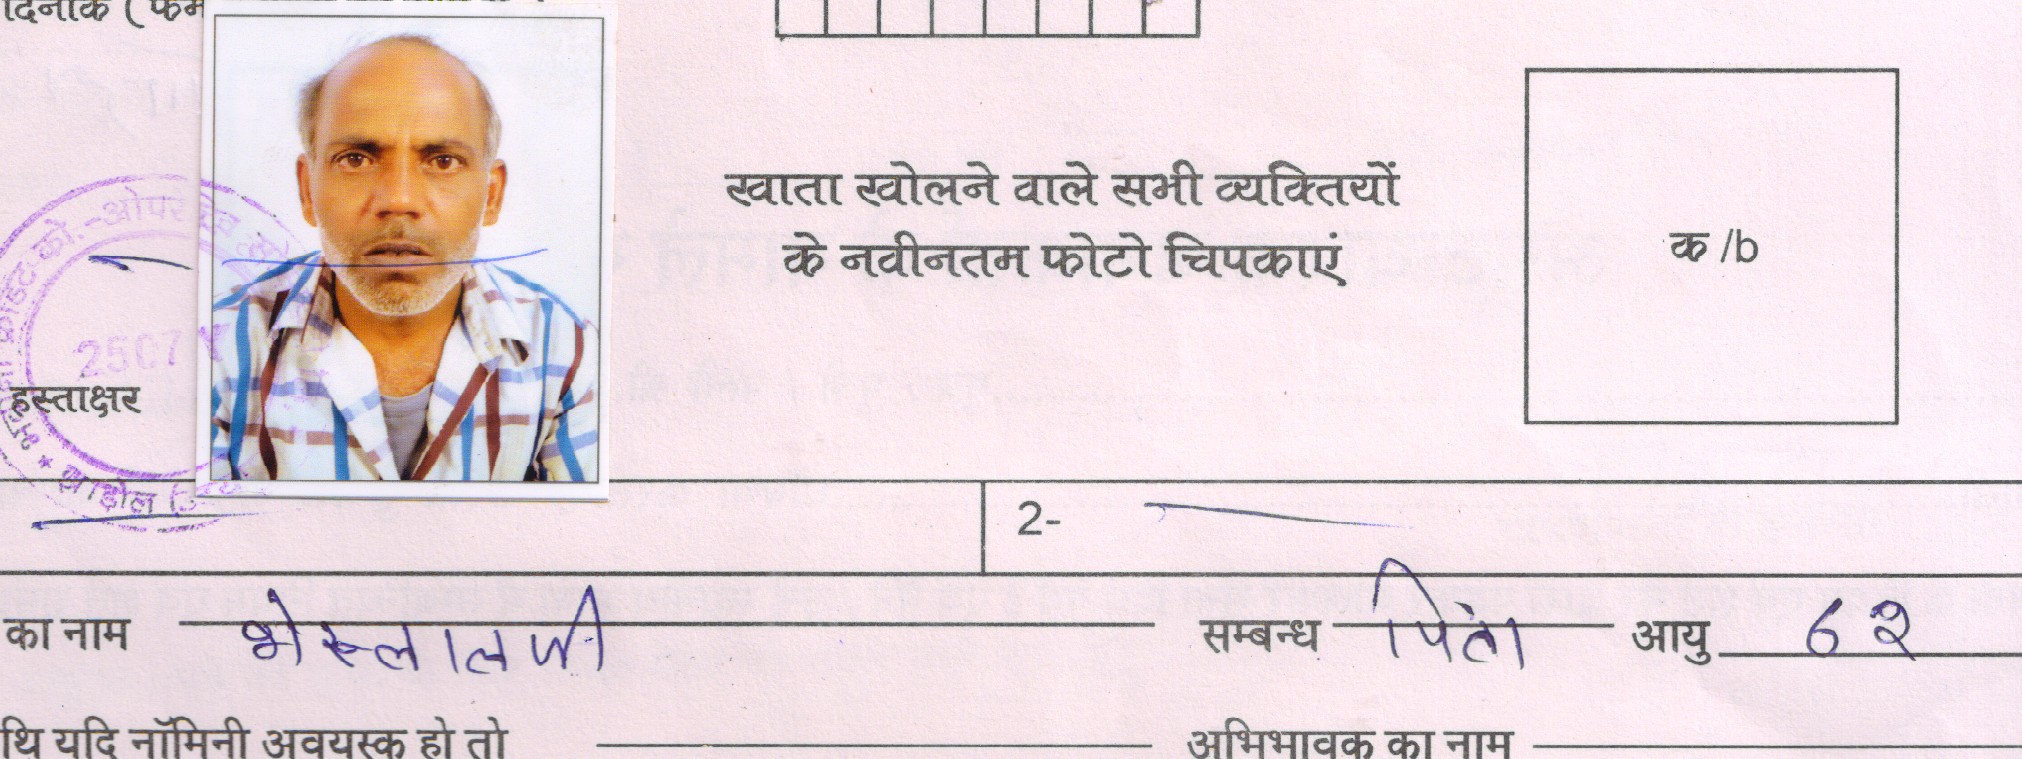 दिनांक ( फर्म
खाता खोलने वाले सभी व्यक्तियों
के नवीनतम फोटो चिपकाएं
क /b
को.-ओपरेटिव
2507
हस्ताक्षर
झाड़ोल
2-
का नाम भेरूलालजी सम्बन्ध पिता आयु 62
थि यदि नॉमिनी अवयस्क हो तो अभिभावक का नाम